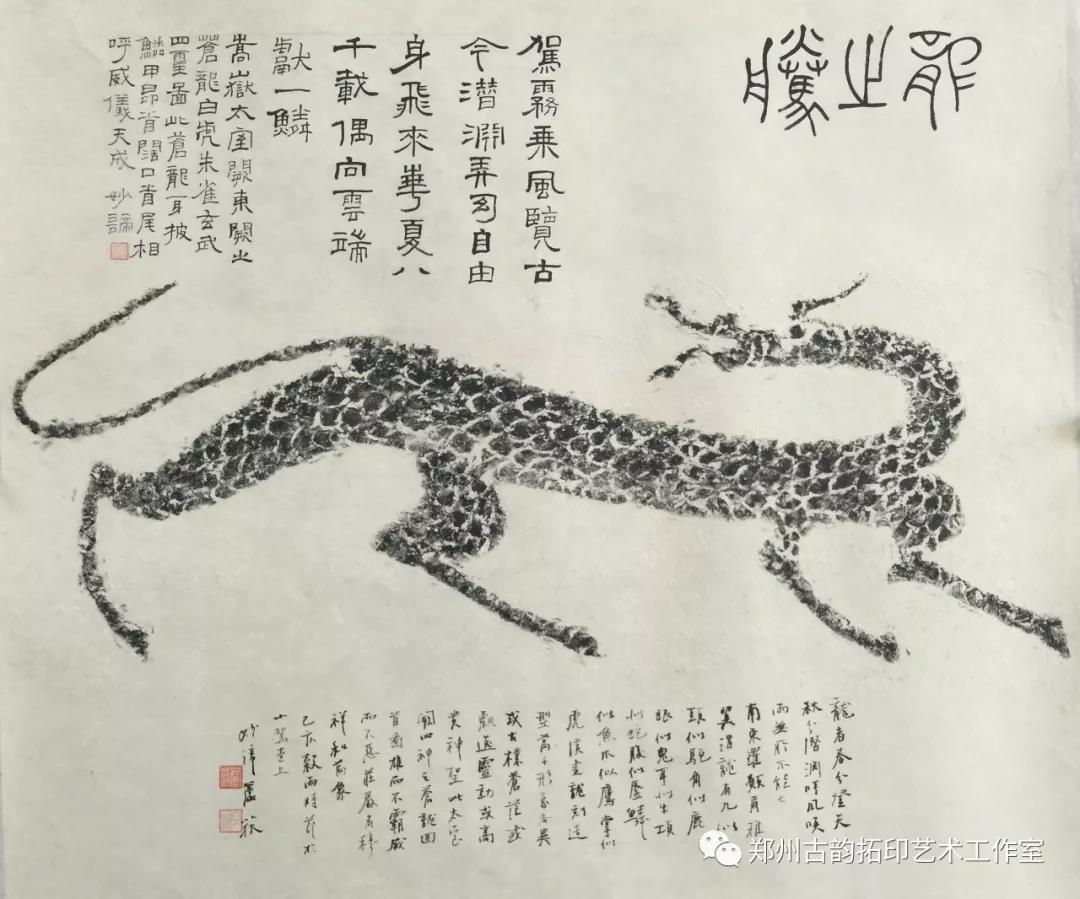 龍之騰
駕霧乘風覽古
今潛淵弄幻自由
身飛來華夏八
千載偶向雲端
獻一鱗
嵩嶽太室闕東闕之
蒼龍白虎朱雀玄武
四靈圖此蒼龍耳披
鱗甲昂首闊口首尾相
呼威儀天成 妙諦
龍者春分登天
秋分潛淵呼風喚
雨無所不能也
南宋羅願爾雅
翼謂龍有九似
頭似駝角似鹿
眼似兔耳似牛項
似蛇腹似蜃鱗
似魚爪似鷹掌似
虎後畫龍刻造
型萬千形象各異
或古樸蒼茫或
飄逸靈動或高
貴神聖此太室
闕四神之蒼龍回
首圖雄而不霸威
而不惡莊嚴肅穆
祥和萬象
己亥穀雨時節於
十駕堂上
妙諦
郑州古韵拓印艺术工作室